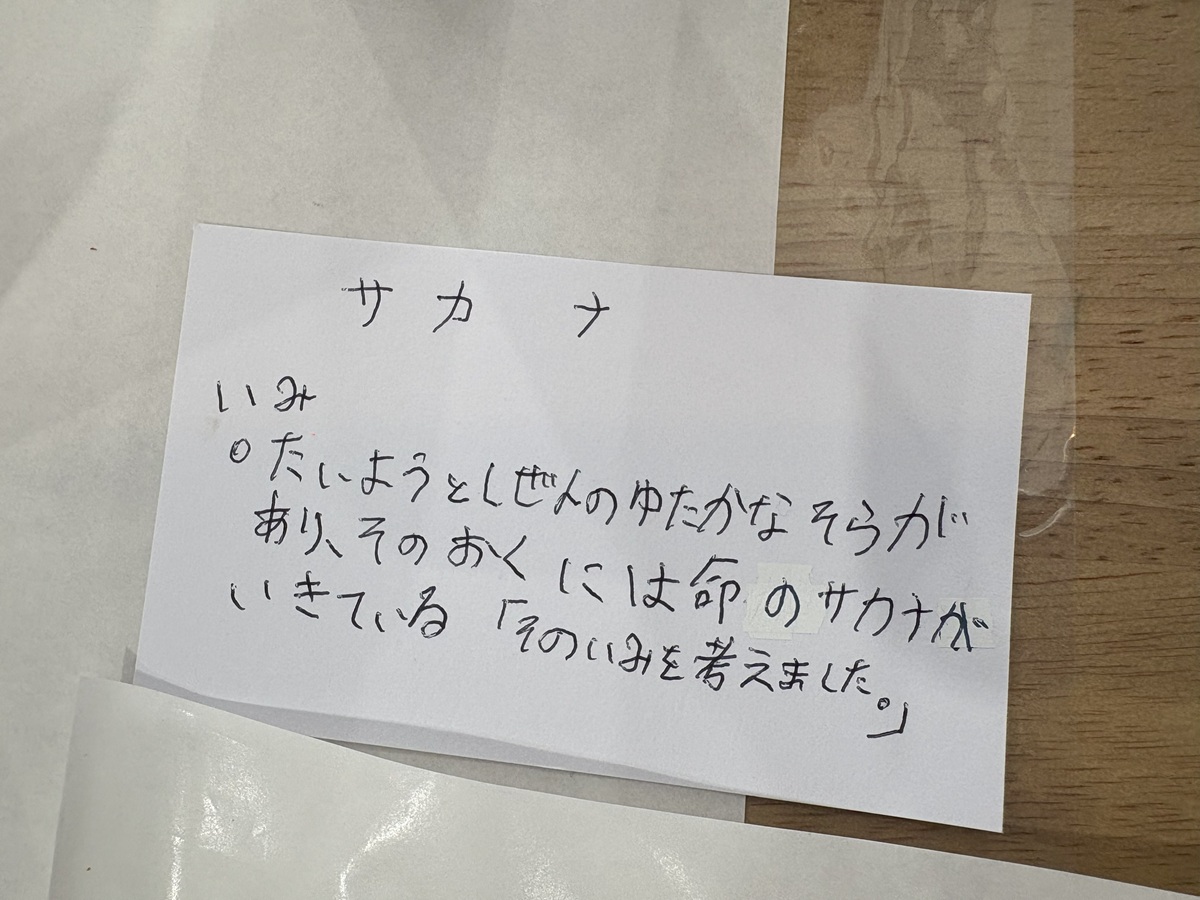 サカ ナ
いみ
○たいようとしぜんのゆたかなそらが
あり、そのおくには命のサカナが
いきている「そのいみを考えました。」